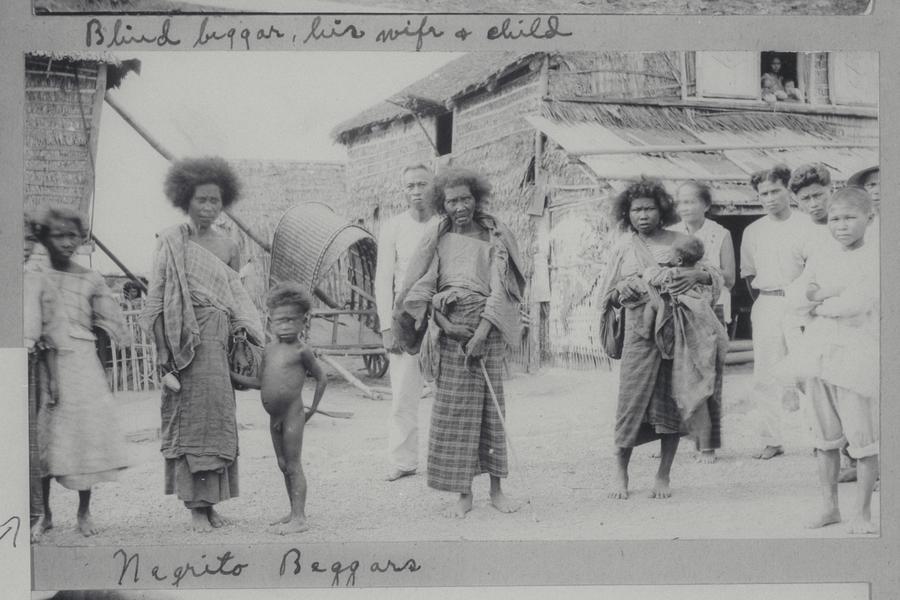 Blind beggar, his wife & child
Negrito Beggars